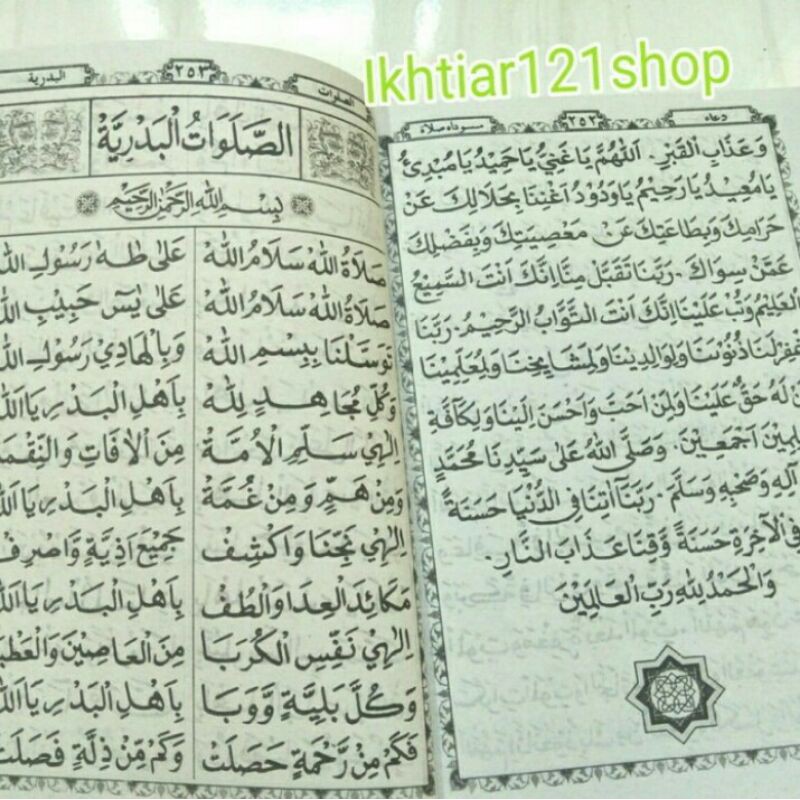 Ikhtiar121shop
دعاء ٢٥٢ سسوداه صلاة
وَعَذَابِ الْقَبْرِ. اَللّٰهُمَّ يَا غَنِيُّ يَا حَمِيْدُ يَا مُبْدِئُ
يَا مُعِيْدُ يَا رَحِيْمُ يَا وَدُوْدُ اَغْنِنَا بِحَلَالِكَ عَنْ
حَرَامِكَ وَبِطَاعَتِكَ عَنْ مَعْصِيَتِكَ وَبِفَضْلِكَ
عَمَّنْ سِوَاكَ. رَبَّنَا تَقَبَّلْ مِنَّا اِنَّكَ اَنْتَ السَّمِيْعُ
الْعَلِيْمُ وَتُبْ عَلَيْنَا اِنَّكَ اَنْتَ التَّوَّابُ الرَّحِيْمُ. رَبَّنَا
غْفِرْ لَنَا ذُنُوْبَنَا وَلِوَالِدِيْنَا وَلِمَشَايِخِنَا وَلِمُعَلِّمِيْنَا
نْ لَهُ حَقٌّ عَلَيْنَا وَلِمَنْ اَحَبَّ وَاَحْسَنَ اِلَيْنَا وَلِكَافَّةِ
لِمِيْنَ اَجْمَعِيْنَ. وَصَلَّى اللّٰهُ عَلٰى سَيِّدِنَا مُحَمَّدٍ
آلِهِ وَصَحْبِهِ وَسَلَّمَ. رَبَّنَا اٰتِنَا فِى الدُّنْيَا حَسَنَةً
فِى الْآخِرَةِ حَسَنَةً وَقِنَا عَذَابَ النَّارِ.
وَالْحَمْدُ لِلّٰهِ رَبِّ الْعَالَمِيْنَ
الصلوات ٢٥٣ البدرية
الصَّلَوَاتُ الْبَدْرِيَّةُ
بِسْمِ اللّٰهِ الرَّحْمٰنِ الرَّحِيْمِ
صَلَاةُ اللّٰهِ سَلَامُ اللّٰهِ عَلٰى طٰهٰ رَسُوْلِ اللّٰهِ
صَلَاةُ اللّٰهِ سَلَامُ اللّٰهِ عَلٰى يٰسٓ حَبِيْبِ اللّٰهِ
تَوَسَّلْنَا بِبِسْمِ اللّٰهِ وَبِالْهَادِيْ رَسُوْلِ اللّٰهِ
وَكُلِّ مُجَاهِدٍ لِلّٰهِ بِاَهْلِ الْبَدْرِ يَا اَللّٰهُ
اِلٰهِيْ سَلِّمِ الْاُمَّةَ مِنَ الْاٰفَاتِ وَالنِّقْمَةِ
وَمِنْ هَمٍّ وَمِنْ غُمَّةٍ بِاَهْلِ الْبَدْرِ يَا اَللّٰهُ
اِلٰهِيْ نَجِّنَا وَاكْشِفْ جَمِيْعَ اَذِيَّةٍ وَاصْرِفْ
مَكَائِدَ الْعِدَا وَالْطُفْ بِاَهْلِ الْبَدْرِ يَا اَللّٰهُ
اِلٰهِيْ نَفِّسِ الْكُرَبَا مِنَ الْعَاصِيْنَ وَالْعَطْبَا
وَكُلَّ بَلِيَّةٍ وَوَبَا بِاَهْلِ الْبَدْرِ يَا اَللّٰهُ
فَكَمْ مِنْ رَحْمَةٍ حَصَلَتْ وَكَمْ مِنْ ذِلَّةٍ فَصَلَتْ